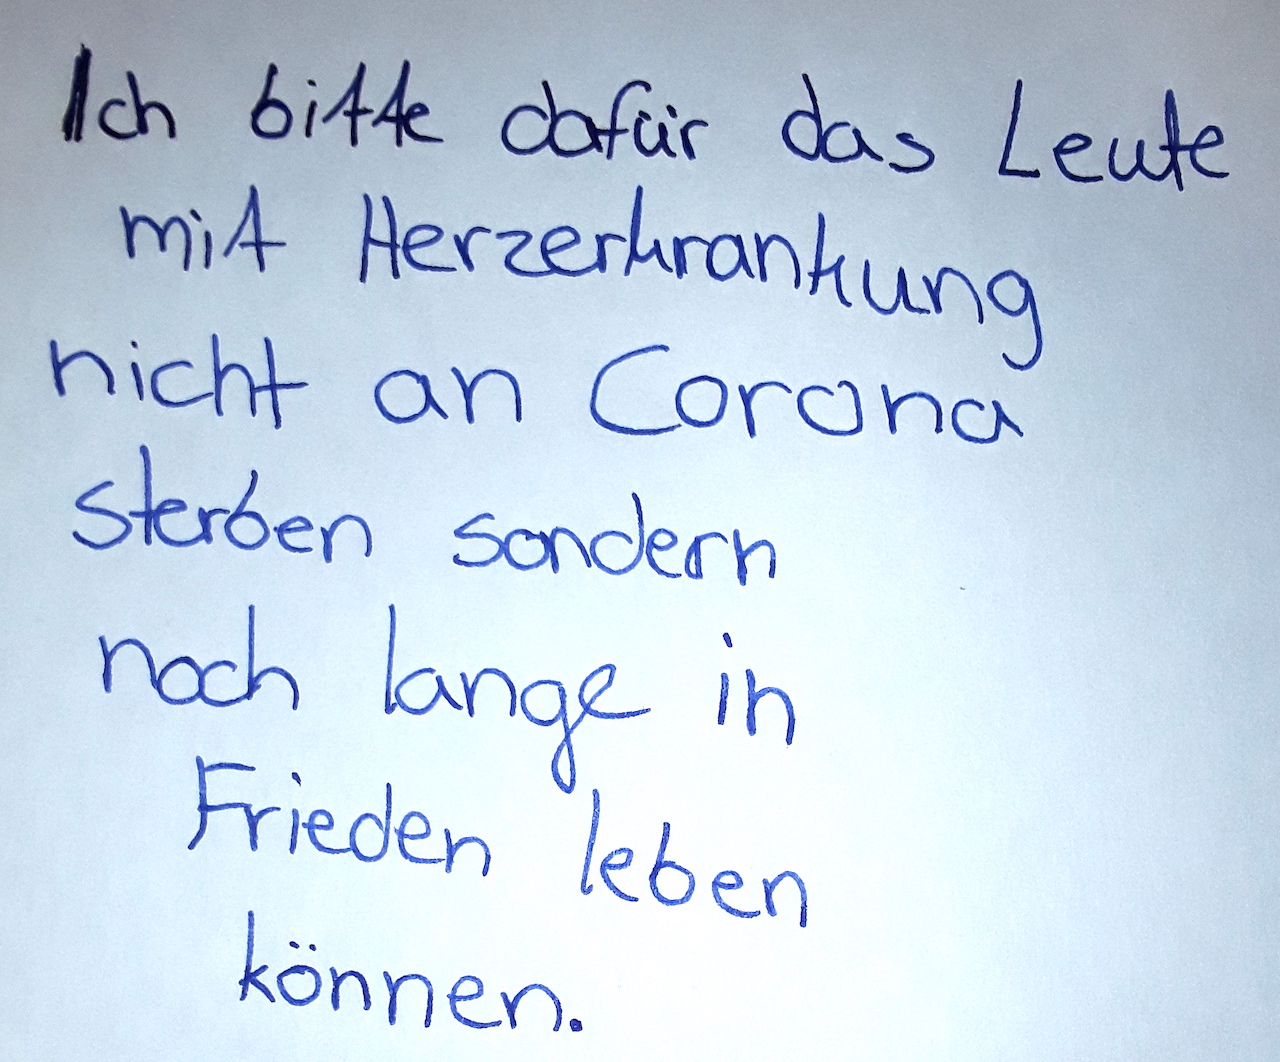 Ich bitte dafür das Leute
mit Herzerkrankung
nicht an Corona
sterben sondern
noch lange in
Frieden leben
können.